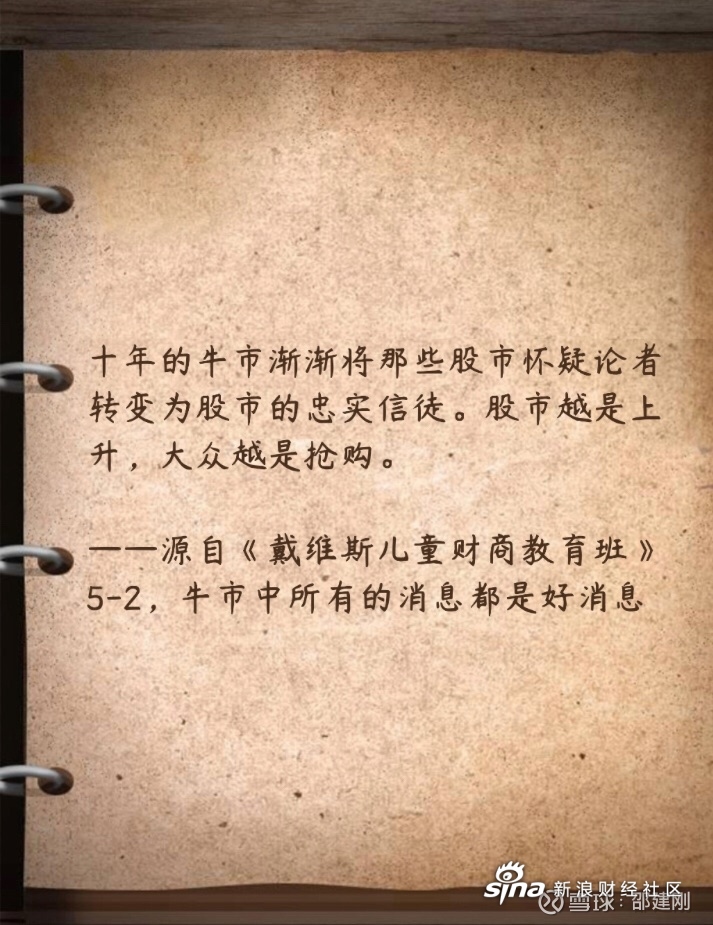 十年的牛市渐渐将那些股市怀疑论者
转变为股市的忠实信徒。股市越是上
升，大众越是抢购。
——源自《戴维斯儿童财商教育班》
5-2，牛市中所有的消息都是好消息
sina 新浪财经社区
雪球：邵建刚